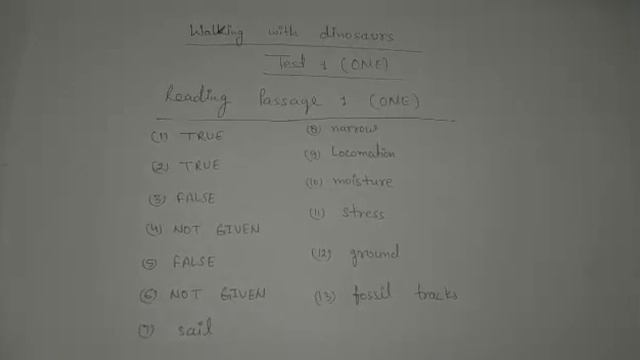 Walking with dinosaurs
Test 1 (ONE)
Reading Passage 1 (ONE)
(1) TRUE
(2) TRUE
(3) FALSE
(4) NOT GIVEN
(5) FALSE
(6) NOT GIVEN
(7) sail
(8) narrow
(9) Locomation
(10) moisture
(11) stress
(12) ground
(13) fossil tracks